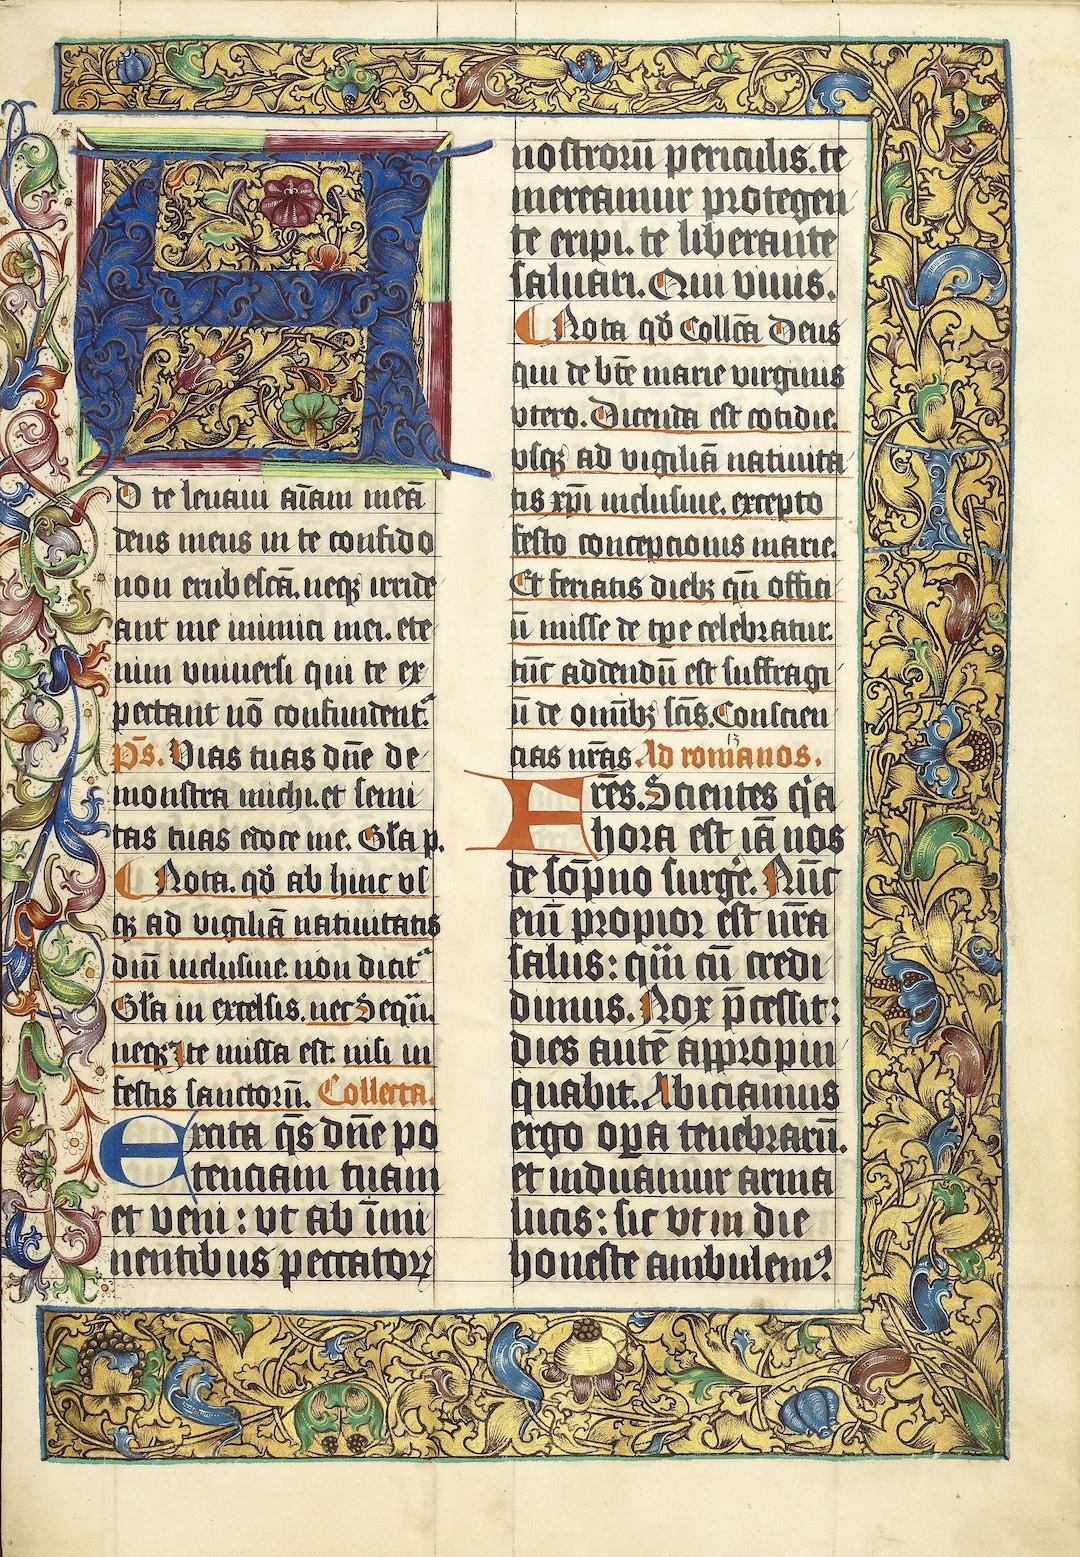 A
D te leuaui aīam meā
deus meus in te confido
non erubescā. neqȝ irride
ant me inimici mei. ete
nim vniuersi qui te ex
pectant nō confundent᷑.
p̄s. Vias tuas dn̄e de
monstra michi. et semi
tas tuas edoce me. Gl̄a p.
Nota. qd̓ ab hinc vs
qȝ ad vigiliā natiuitatis
dn̄i inclusiue. non dicit᷑
Gl̄a in excelsis. nec Seqū.
neqȝ Ite missa est. nisi in
festis sanctorū. Collecta.
Excita qs̄ dn̄e po
tenciam tuam
et veni: vt ab īmi
nentibus peccatorꝝ
nostrorū periculis. te
mereamur protegen
te eripi. te liberante
saluari. Qui viuis.
Nota qd̓ Collc̄a Deus
qui de bt̄e marie virginis
vtero. Dicenda est cotidie.
vsqȝ ad vigiliā natiuita
tis xp̄i inclusiue. excepto
festo concepcionis marie.
Et feriatis diebȝ qn̄ offici
ū misse de tp̄e celebratur.
tūc addendū est suffragi
ū de omībȝ sc̄is. Conscien
cias nr̄as. Ad romanos.
13
Fr̄es. Scientes qꝛa
hora est iā nos
de sōpno surge̓. Nūc
eni̅ propior est nr̄a
salus: qu̅ cū credi
dimus. Nox p̄cessit:
dies autē appropin
quabit. Abiciamus
ergo oꝑa tenebrarū.
et induamur arma
lucis: sic vt in die
honeste ambulemꝰ.